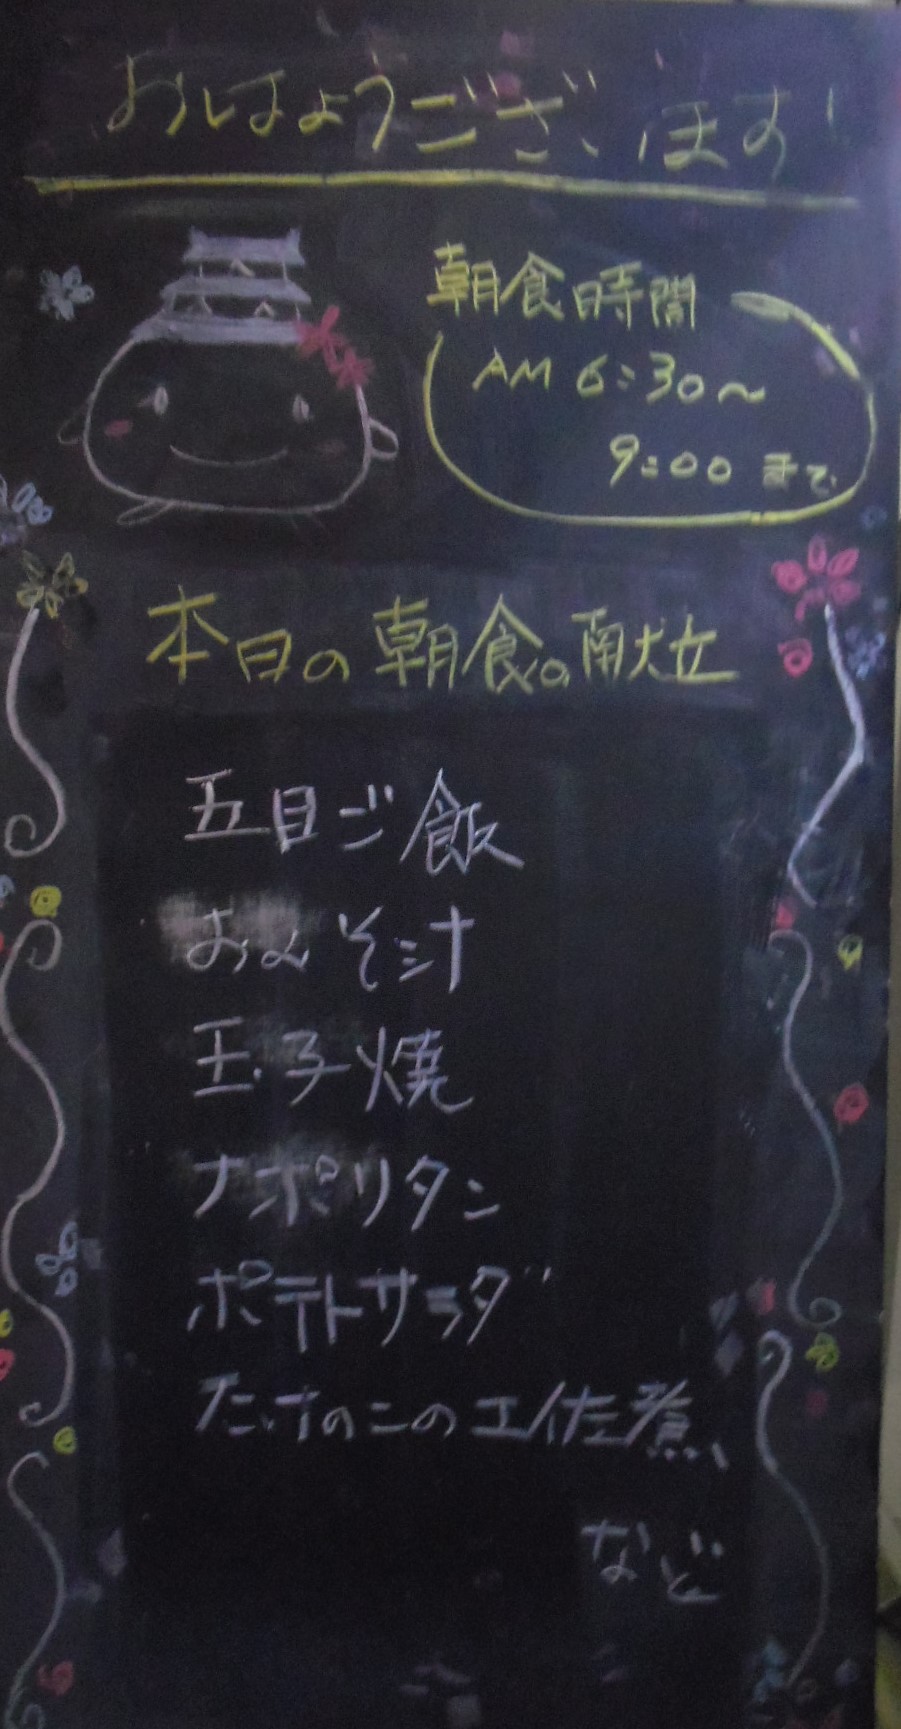 おはようございます!
朝食時間
AM 6:30~
9:00 まで
本日の朝食の献立
五目ご飯
おみそ汁
玉子焼
ナポリタン
ポテトサラダ
たけのこの土佐煮
など